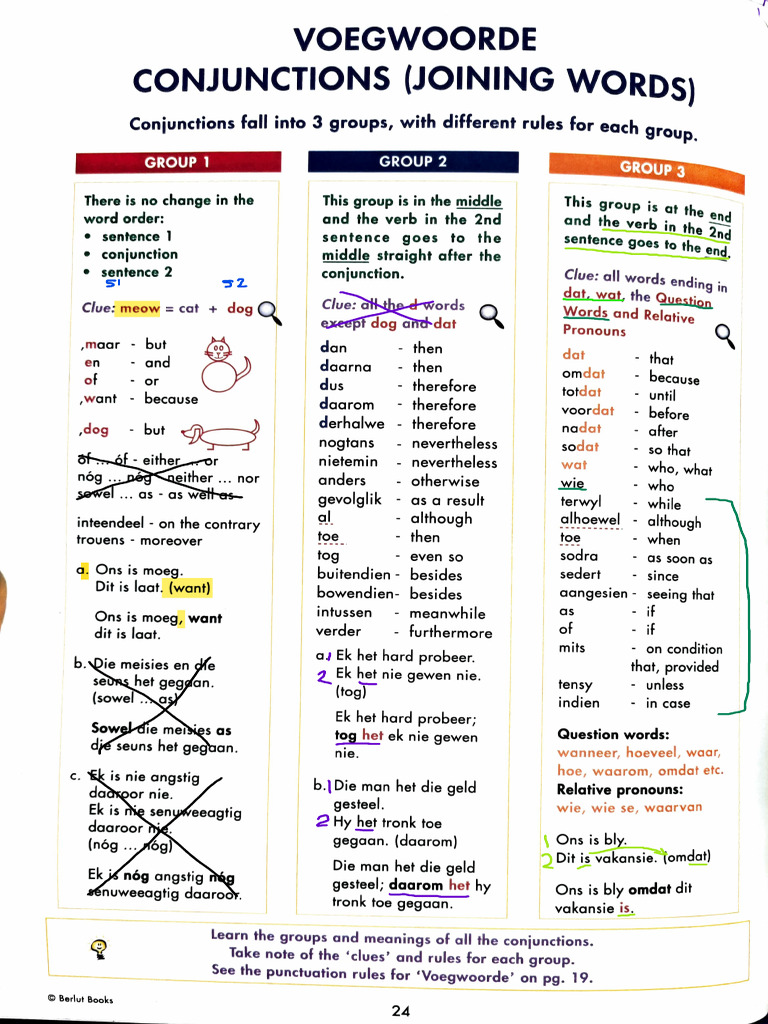 VOEGWOORDE
CONJUNCTIONS (JOINING WORDS)
Conjunctions fall into 3 groups, with different rules for each group.
GROUP 1
There is no change in the
word order:
• sentence 1
• conjunction
• sentence 2
S1 S2
Clue: meow = cat + dog
,maar - but
en - and
of - or
,want - because
,dog - but
óf ... óf - either ... or
nóg ... nóg - neither ... nor
sowel ... as - as well as
inteendeel - on the contrary
trouens - moreover
a. Ons is moeg.
Dit is laat. (want)
Ons is moeg, want
dit is laat.
b. Die meisies en die
seuns het gegaan.
(sowel ... as)
Sowel die meisies as
die seuns het gegaan.
c. Ek is nie angstig
daaroor nie.
Ek is nie senuweeagtig
daaroor nie.
(nóg ... nóg)
Ek is nóg angstig nóg
senuweeagtig daaroor.
GROUP 2
This group is in the middle
and the verb in the 2nd
sentence goes to the
middle straight after the
conjunction.
Clue: all the d words
except dog and dat
dan - then
daarna - then
dus - therefore
daarom - therefore
derhalwe - therefore
nogtans - nevertheless
nietemin - nevertheless
anders - otherwise
gevolglik - as a result
al - although
toe - then
tog - even so
buitendien - besides
bowendien - besides
intussen - meanwhile
verder - furthermore
a. 1 Ek het hard probeer.
2 Ek het nie gewen nie.
(tog)
Ek het hard probeer;
tog het ek nie gewen
nie.
b. 1 Die man het die geld
gesteel.
2 Hy het tronk toe
gegaan. (daarom)
Die man het die geld
gesteel; daarom het hy
tronk toe gegaan.
GROUP 3
This group is at the end
and the verb in the 2nd
sentence goes to the end.
Clue: all words ending in
dat, wat, the Question
Words and Relative
Pronouns
dat - that
omdat - because
totdat - until
voordat - before
nadat - after
sodat - so that
wat - who, what
wie - who
terwyl - while
alhoewel - although
toe - when
sodra - as soon as
sedert - since
aangesien - seeing that
as - if
of - if
mits - on condition
that, provided
tensy - unless
indien - in case
Question words:
wanneer, hoeveel, waar,
hoe, waarom, omdat etc.
Relative pronouns:
wie, wie se, waarvan
1 Ons is bly.
2 Dit is vakansie. (omdat)
Ons is bly omdat dit
vakansie is.
Learn the groups and meanings of all the conjunctions.
Take note of the 'clues' and rules for each group.
See the punctuation rules for 'Voegwoorde' on pg. 19.
© Berlut Books
24